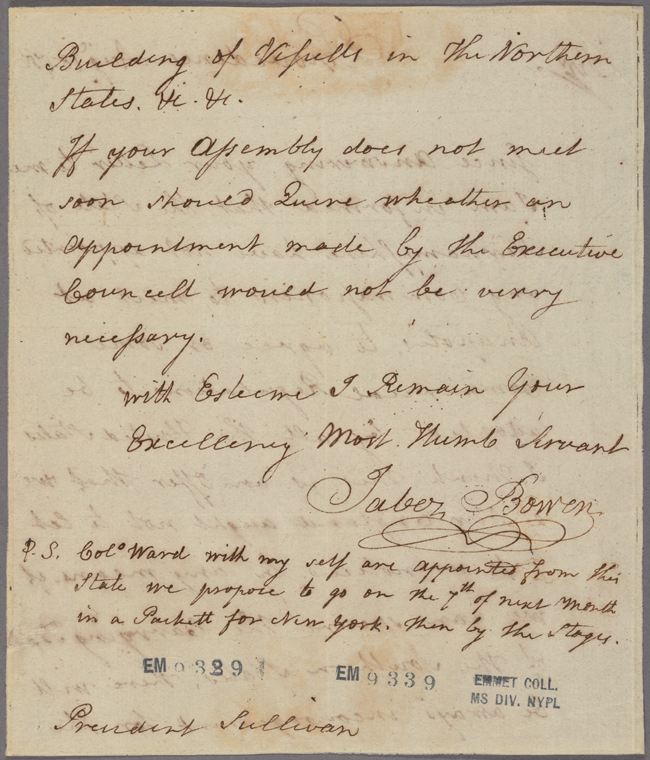 Building of Vessells in the Northern
States. &c. &c.
If your Assembly does not meet
soon should Quere wheather an
appointment made by the Executive
Councell would not be verry
necessary.
with Esteeme I Remain Your
Excellency Most Humb Servant
Jabez Bowen
P.S. Colo Ward with my self are appointed from this
State we propose to go on the 7th of next Month
in a Packett for New York. then by the Stages.
EM 9329
EM 9339
EMMET COLL.
MS DIV. NYPL
President Sullivan